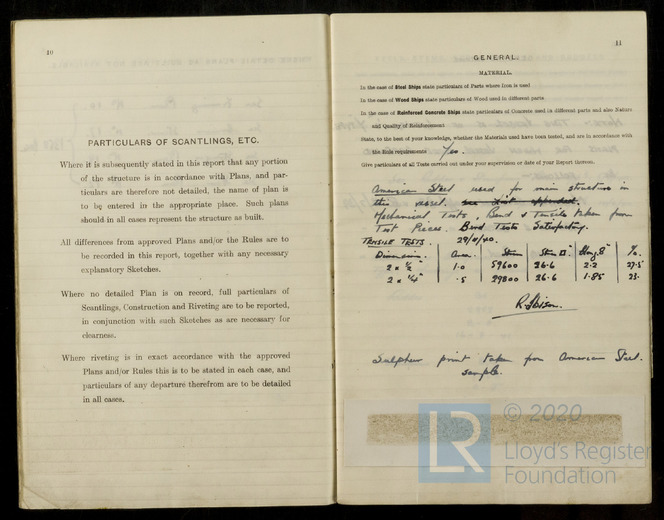 10
PARTICULARS OF SCANTLINGS, ETC.
Where it is subsequently stated in this report that any portion
of the structure is in accordance with Plans, and par-
ticulars are therefore not detailed, the name of plan is
to be entered in the appropriate place. Such plans
should in all cases represent the structure as built.
All differences from approved Plans and/or the Rules are to
be recorded in this report, together with any necessary
explanatory Sketches.
Where no detailed Plan is on record, full particulars of
Scantlings, Construction and Riveting are to be reported,
in conjunction with such Sketches as are necessary for
clearness.
Where riveting is in exact accordance with the approved
Plans and/or Rules this is to be stated in each case, and
particulars of any departure therefrom are to be detailed
in all cases.
11
GENERAL.
MATERIAL.
In the case of Steel Ships state particulars of Parts where Iron is used
In the case of Wood Ships state particulars of Wood used in different parts
In the case of Reinforced Concrete Ships state particulars of Concrete used in different parts and also Nature
and Quality of Reinforcement
State, to the best of your knowledge, whether the Materials used have been tested, and are in accordance with
the Rule requirements Yes.
Give particulars of all Tests carried out under your supervision or date of your Report thereon.
American Steel used for main structure in
this vessel. see list appended.
Mechanical Tests, Bend & Tensile taken from
Test Pieces. Bend Tests Satisfactory.
TENSILE TESTS. 29/11/40.
Dimension. Area. Strain Elong 8" %.
2 x ½ 1.0 59600 26.6 2.2 27.5
2 x ¼ .5 29800 26.6 1.85 23.
Sulphur print taken from American Steel.
sample.
© 2020
LR
Lloyd's Register
Foundation